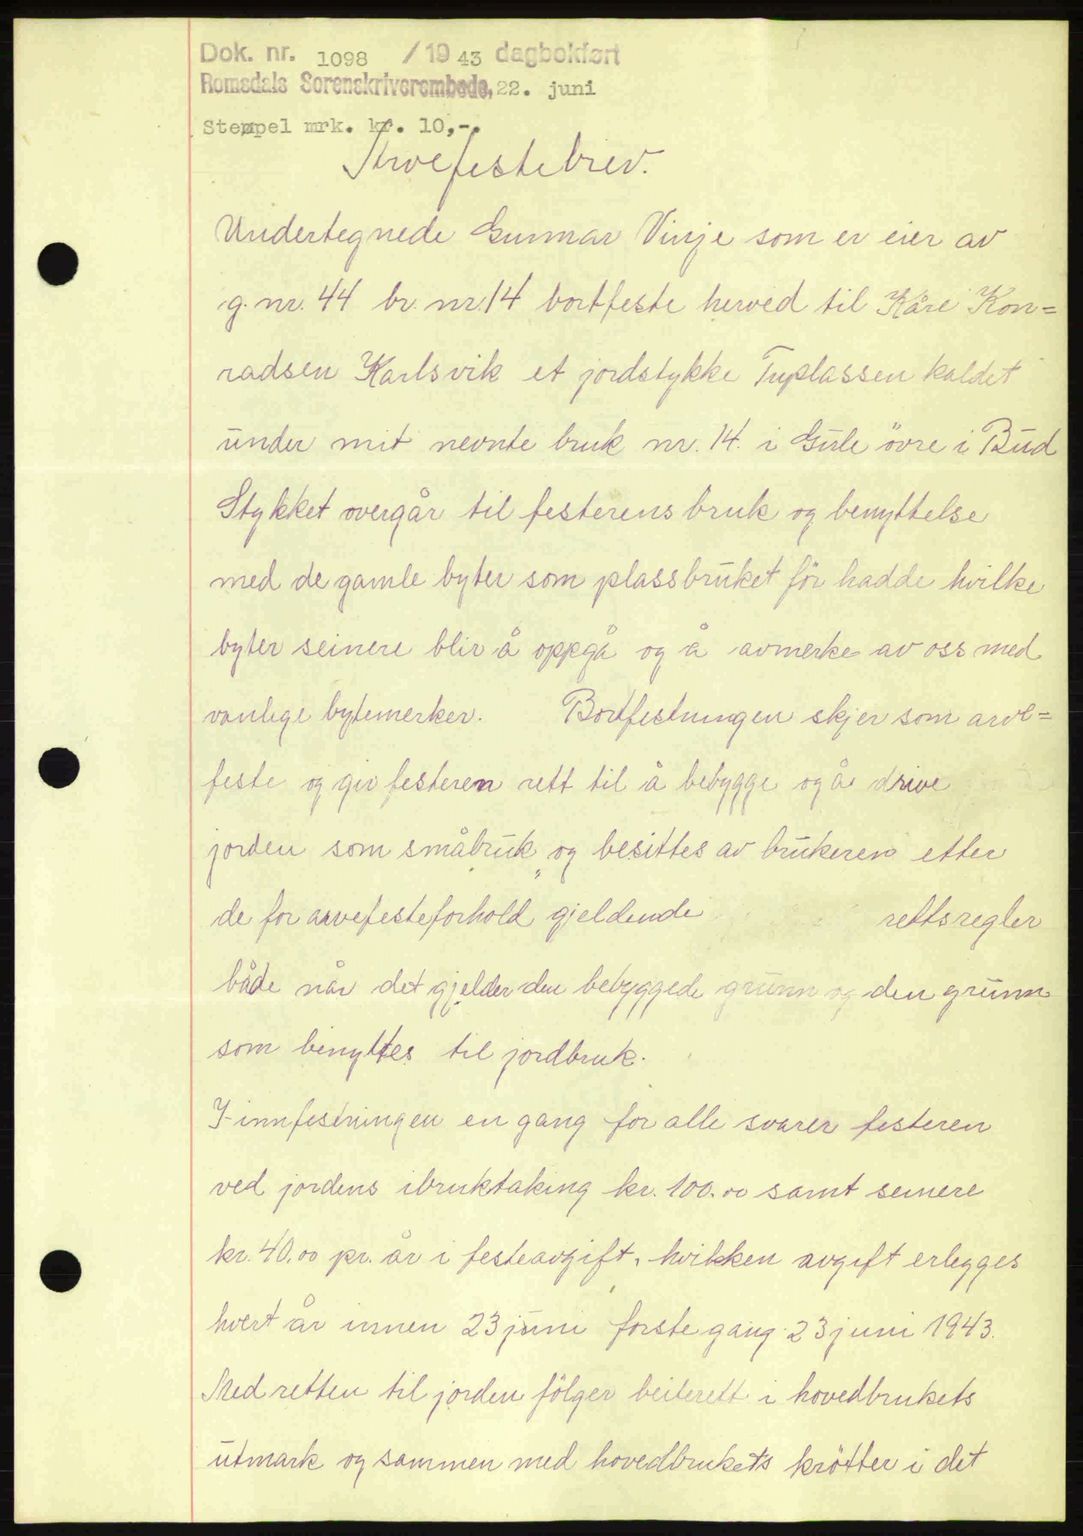 Dok. nr. 1098 / 1943 dagbokført
Romsdals Sorenskriverembede, 22. juni
Stempel mrk. kr. 10,-.
Arvefestebrev.
Undertegnede Gunnar Vinje som er eier av
g. nr. 44 br. nr. 14 bortfeste herved til Kåre Kon=
radsen Karlsvik et jordstykke Tuplassen kaldet
under mit nevnte bruk nr. 14. i Gule övre i Bud
Stykket overgår til festerens bruk og benyttelse
med de gamle byter som plassbruket för hadde hvilke
byter seinere blir å oppgå og å avmerke av oss med
vanlige bytemerker. Bortfestningen skjer som arve=
feste og gir festeren rett til å bebygge og å drive
jorden som småbruk og besittes av brukeren etter
de for arvefesteforhold gjeldende rettsregler
både når det gjelder den bebyggede grunn og den grunn
som benyttes til jordbruk.
I innfestningen en gang for alle svarer festeren
ved jordens ibruktaking kr. 100.00 samt seinere
kr. 40.00 pr. år i festeavgift, hvilken avgift erlegges
hvert år innen 23 juni forste gang 23 juni 1943.
Med retten til jorden fölger beiterett i hovedbrukets
utmark og sammen med hovedbrukets krötter i det